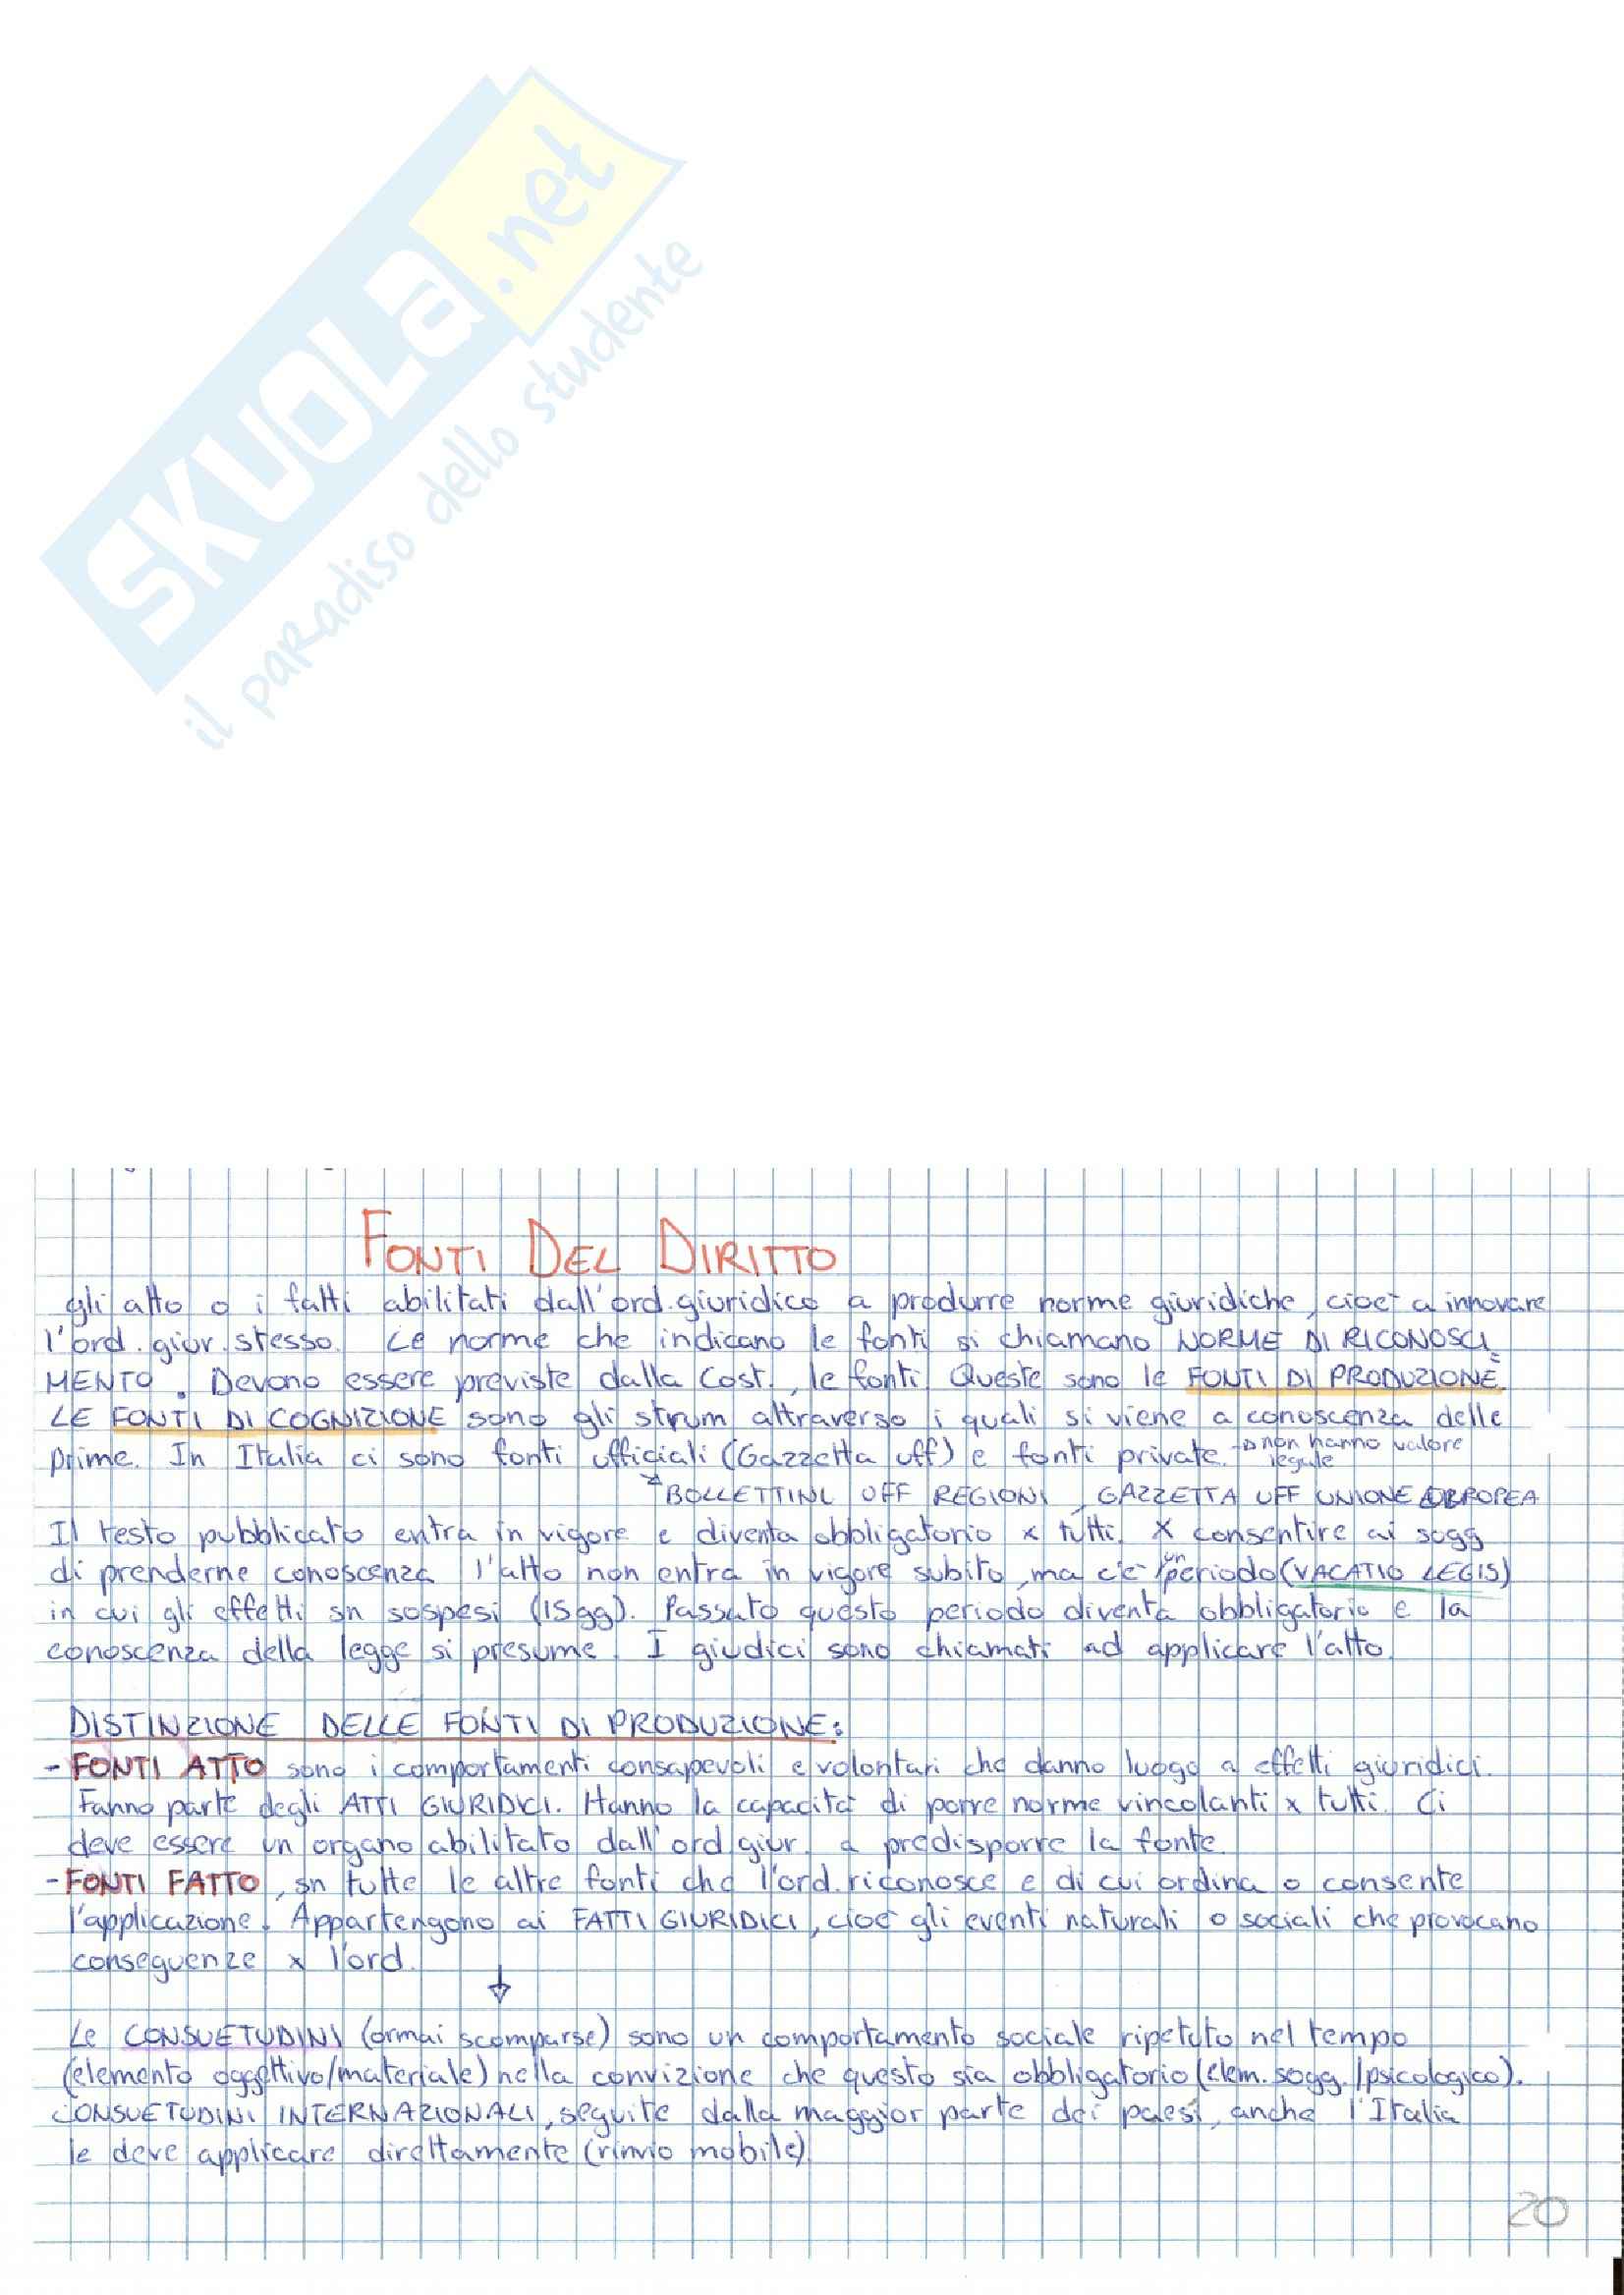 SKUOLa.net
il paradiso dello studente
FONTI DEL DIRITTO
gli atto o i fatti abilitati dall'ord.giuridico a produrre norme giuridiche, cioè a innovare
l'ord. giur. stesso. Le norme che indicano le fonti si chiamano NORME DI RICONOSCI=
MENTO. Devono essere previste dalla Cost., le fonti. Queste sono le FONTI DI PRODUZIONE.
LE FONTI DI COGNIZIONE sono gli strum attraverso i quali si viene a conoscenza delle
prime. In Italia ci sono fonti ufficiali (Gazzetta uff) e fonti private. → non hanno valore
legale
↘ BOLLETTINI UFF REGIONI, GAZZETTA UFF UNIONE EUROPEA
Il testo pubblicato entra in vigore e diventa obbligatorio x tutti. X consentire ai sogg
di prenderne conoscenza l'atto non entra in vigore subito, ma c'è un periodo (VACATIO LEGIS)
in cui gli effetti sn sospesi (15gg). Passato questo periodo diventa obbligatorio e la
conoscenza della legge si presume. I giudici sono chiamati ad applicare l'atto.
DISTINZIONE DELLE FONTI DI PRODUZIONE:
- FONTI ATTO sono i comportamenti consapevoli e volontari che danno luogo a effetti giuridici.
Fanno parte degli ATTI GIURIDICI. Hanno la capacità di porre norme vincolanti x tutti. Ci
deve essere un organo abilitato dall'ord giur. a predisporre la fonte.
- FONTI FATTO, sn tutte le altre fonti che l'ord. riconosce e di cui ordina o consente
l'applicazione. Appartengono ai FATTI GIURIDICI, cioè gli eventi naturali o sociali che provocano
conseguenze x l'ord.
↓
Le CONSUETUDINI (ormai scomparse) sono un comportamento sociale ripetuto nel tempo
(elemento oggettivo/materiale) nella convizione che questo sia obbligatorio (elem. sogg./psicologico).
CONSUETUDINI INTERNAZIONALI, seguite dalla maggior parte dei paesi, anche l'Italia
le deve applicare direttamente (rinvio mobile)
20